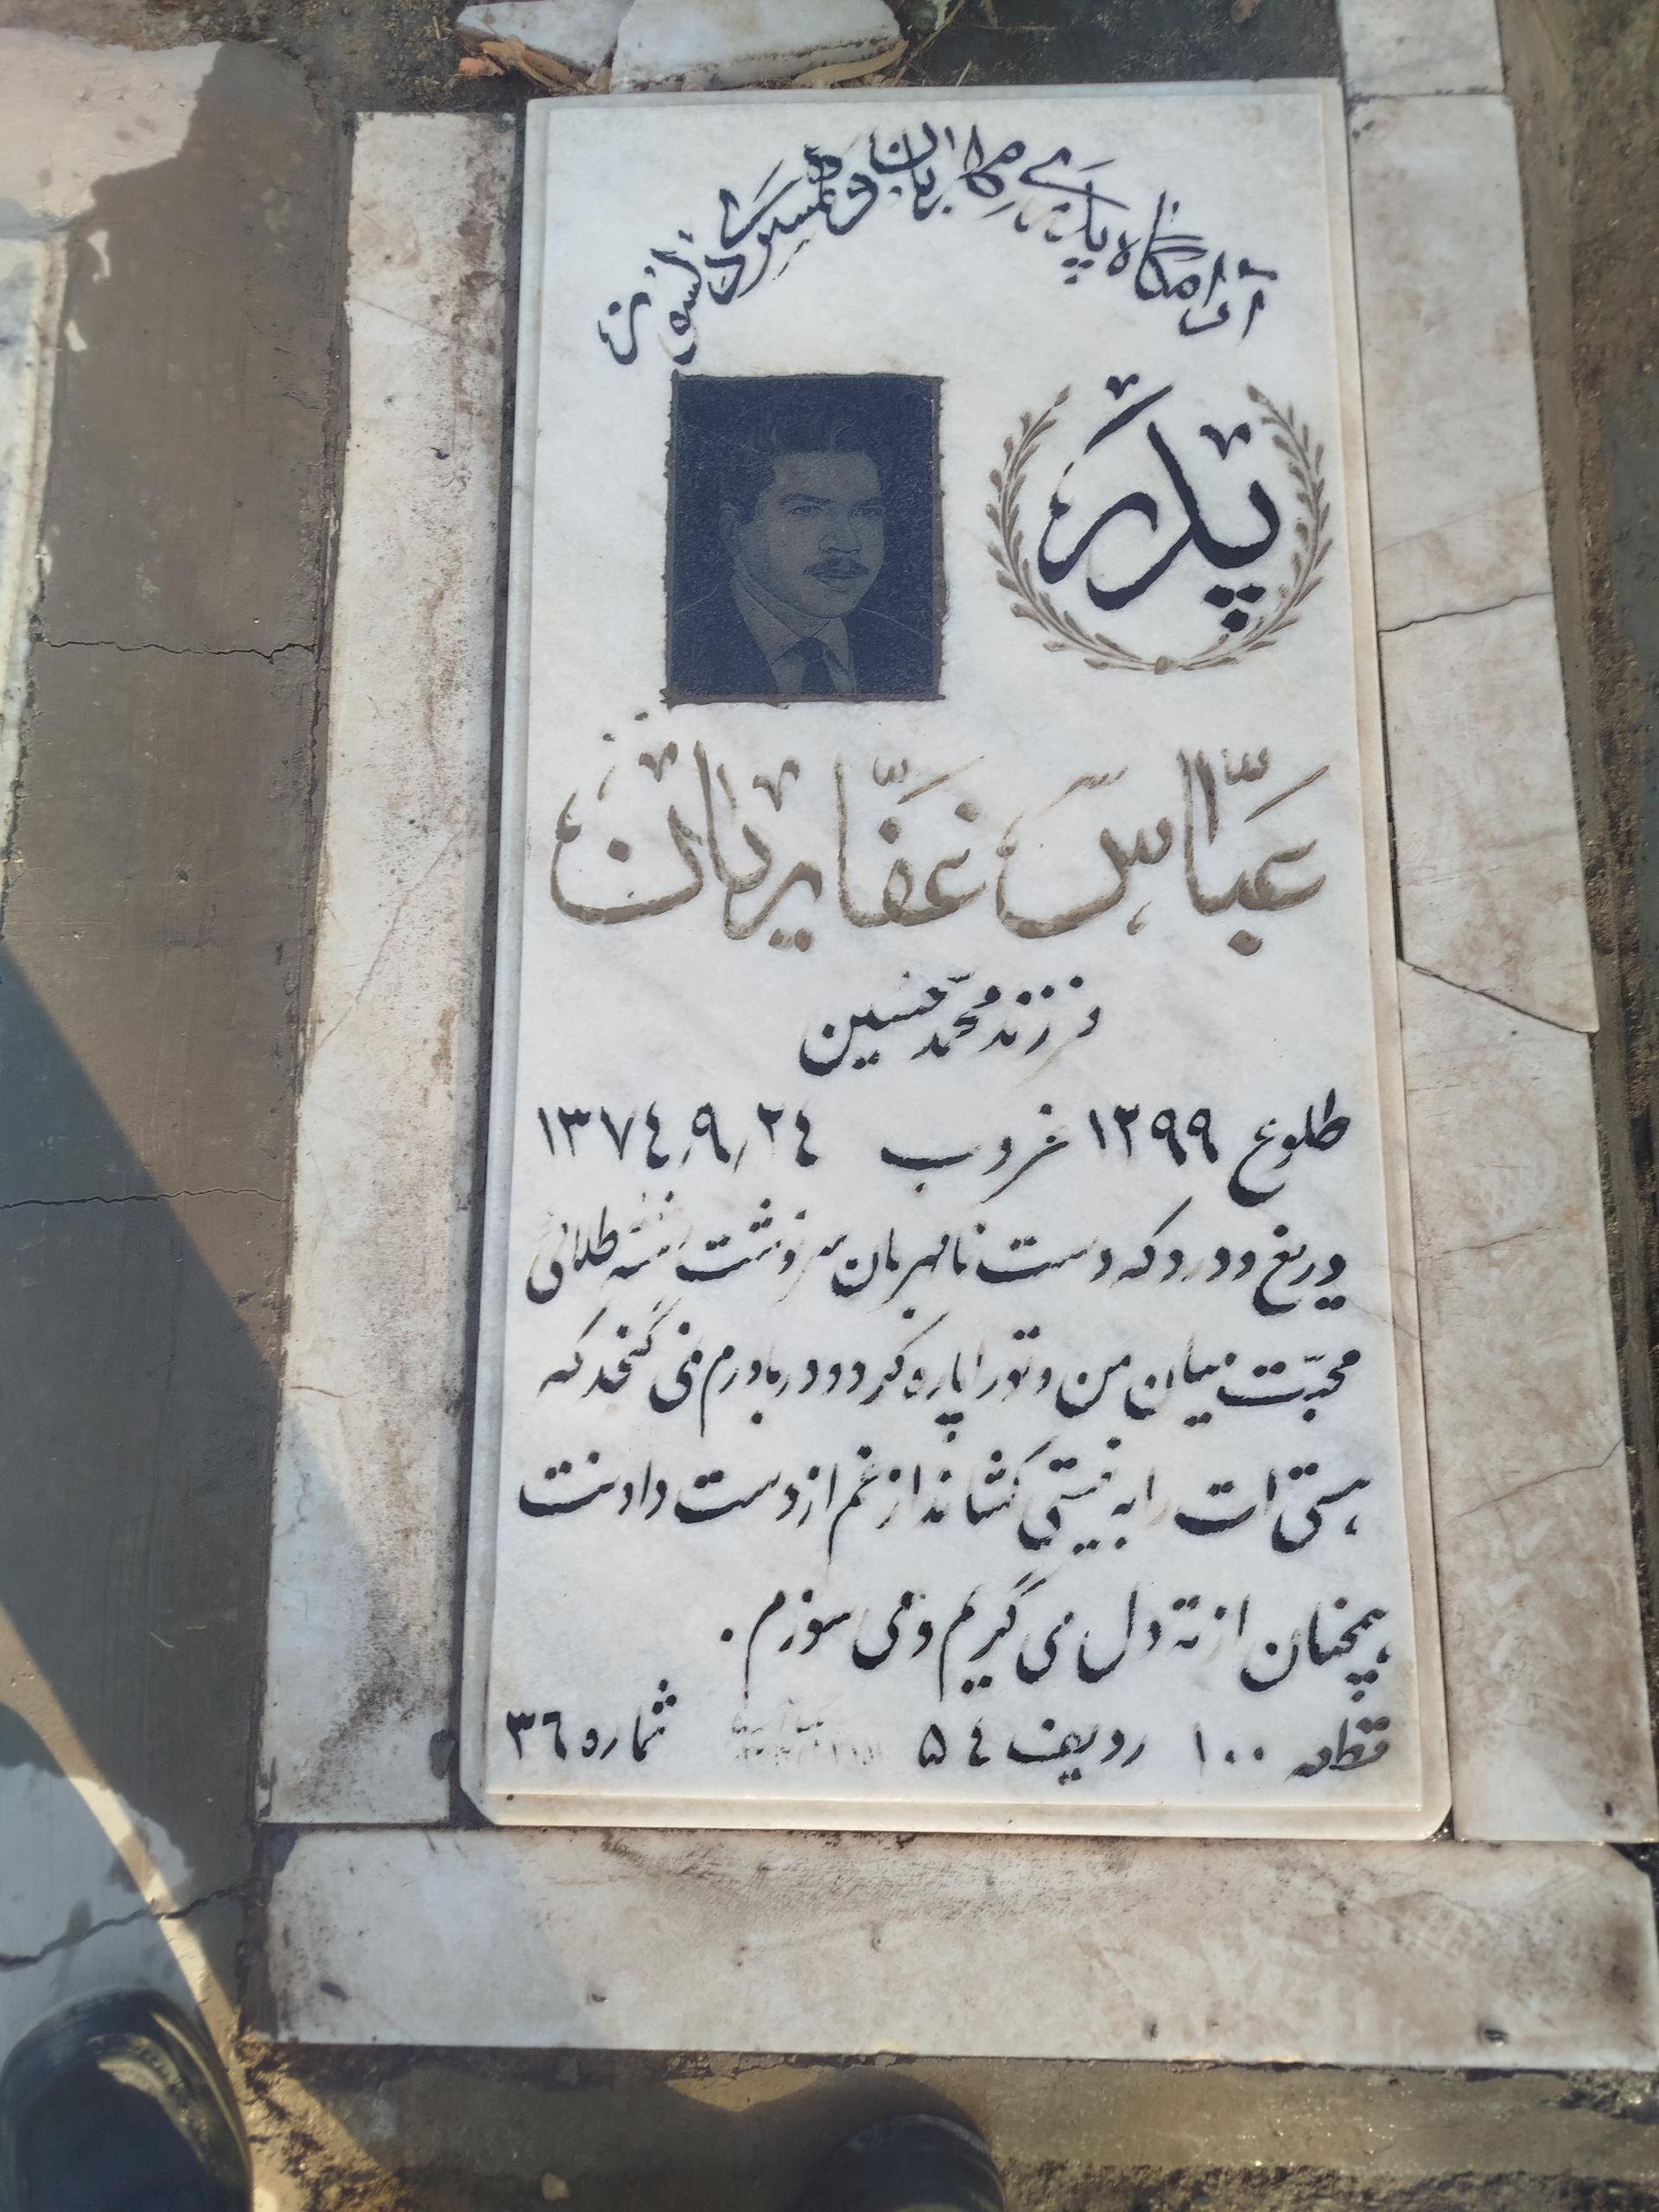 آرامگاه پدری مهربان و همسری دلسوز
پدر
عبّاس غفّاریان
فرزند محمّد حسین
طلوع ۱۲۹۹ غروب ۱۳۷٤/۹/۲٤
دریغ و درد که دست نامهربان سرنوشت رشته طلائی
محبّت میان من و تو را پاره کرد و در باورم نمی گنجد که
هستی ات را به نیستی کشاند از غم از دست دادنت
همچنان از ته دل می گریم و می سوزم .
قطعه ۱۰۰ ردیف ٥٤ شماره ۳٦